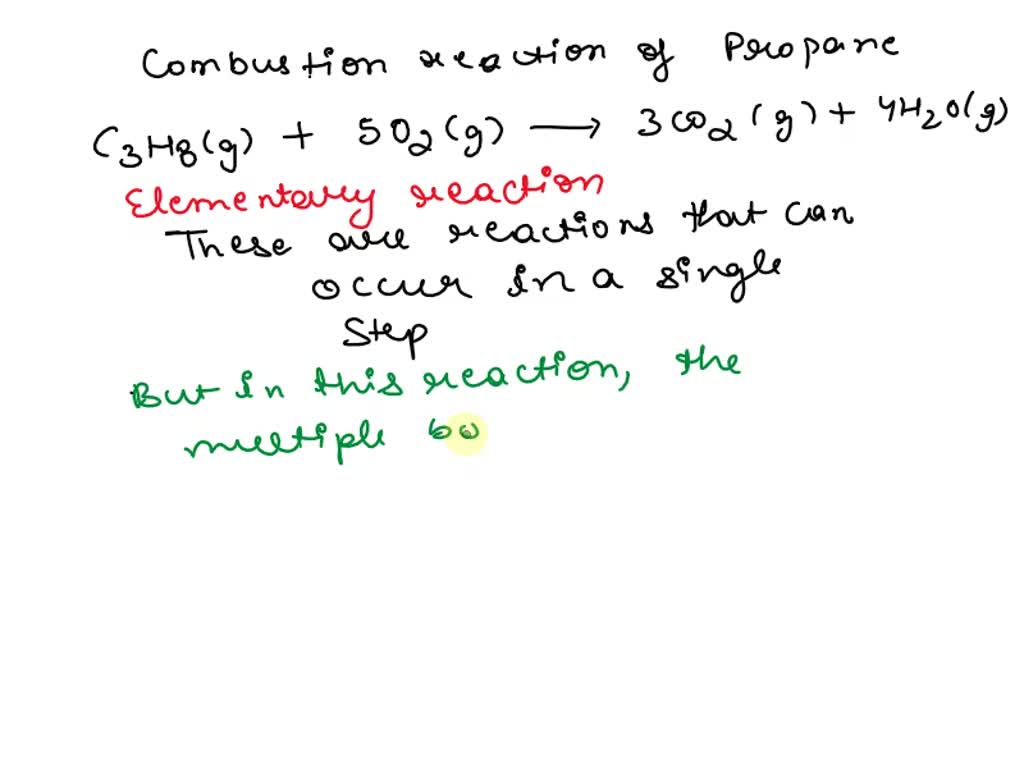 Combustion reaction of Propane
C3H8(g) + 5O2(g) → 3CO2(g) + 4H2O(g)
Elementary reaction
These are reactions that can
occur in a single
Step
But in this reaction, the
multiple bo